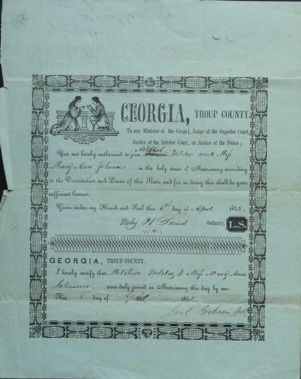 GEORGIA, TROUP COUNTY.
To any Minister of the Gospel, Judge of the Superior Court,
Justice of the Inferior Court, or Justice of the Peace;
You are hereby authorized to join and Miss
Mary Ann Johnson in the holy state of Matrimony according
to the Constitution and Laws of this State; and for so doing this shall be your
sufficient license.
Given under my Hand and Seal this day of April 185
Ordinary. L.S.
GEORGIA, TROUP COUNTY.
I hereby certify that & Miss Mary Ann
Johnson were duly joined in Matrimony this day by me.
This day of April 185
Joel